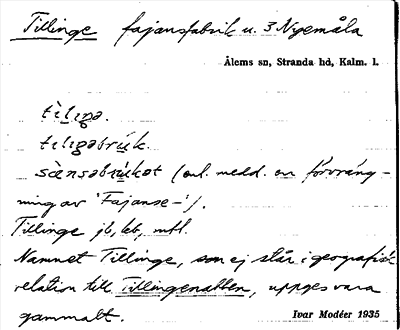 Tillinge fajansfabrik u. 3 Nyemåla
Ålems sn, Stranda hd, Kalm. l.
tìliŋə.
tiliŋəbrúk.
sànsəbrúkət (enl. medd. en förvräng-
ning av 'Fajanse-').
Tillinge jb, kb, mtl.
Namnet Tillinge, som ej står i geografisk
relation till Tillingenabben, uppges vara
gammalt.
Ivar Modéer 1935